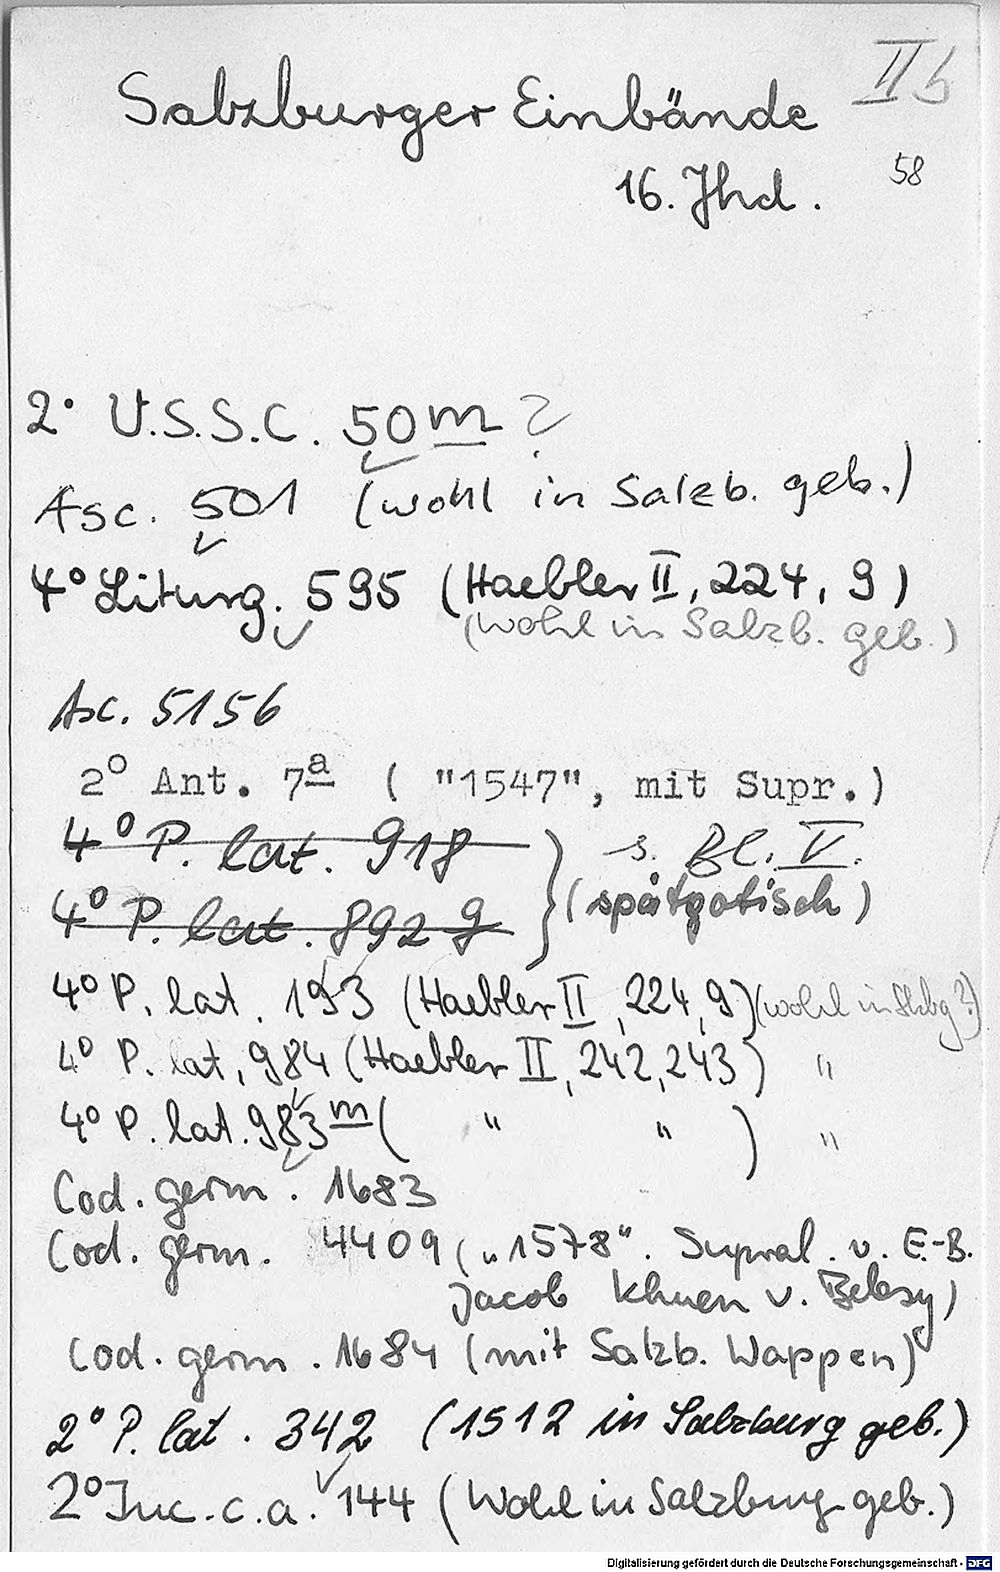 II b
Salzburger Einbände
58
16. Jhd.
2° V.S.S.C. 50 m ?
Asc. 501 (wohl in Salzb. geb.)
4° Liturg. 595 (Haebler II, 224, 9)
(wohl in Salzb. geb.)
Asc. 5156
2° Ant. 7a ( "1547", mit Supr.)
4° P. lat. 918 } s. Bl. V.
4° P. lat. 892 g } (spätgotisch)
4° P. lat. 193 (Haebler II, 224, 9) (wohl in Slzbg?)
4° P. lat. 984 (Haebler II, 242, 243) "
4° P. lat. 983 m ( " " ) "
Cod. germ. 1683
Cod. germ. 4409 („1578“. Supral. v. E.-B.
Jacob Khuen v. Belasy)
Cod. germ. 1684 (mit Salzb. Wappen)
2° P. lat. 342 (1512 in Salzburg geb.)
2° Inc. c. a. 144 (Wohl in Salzburg geb.)
Digitalisierung gefördert durch die Deutsche Forschungsgemeinschaft - DFG